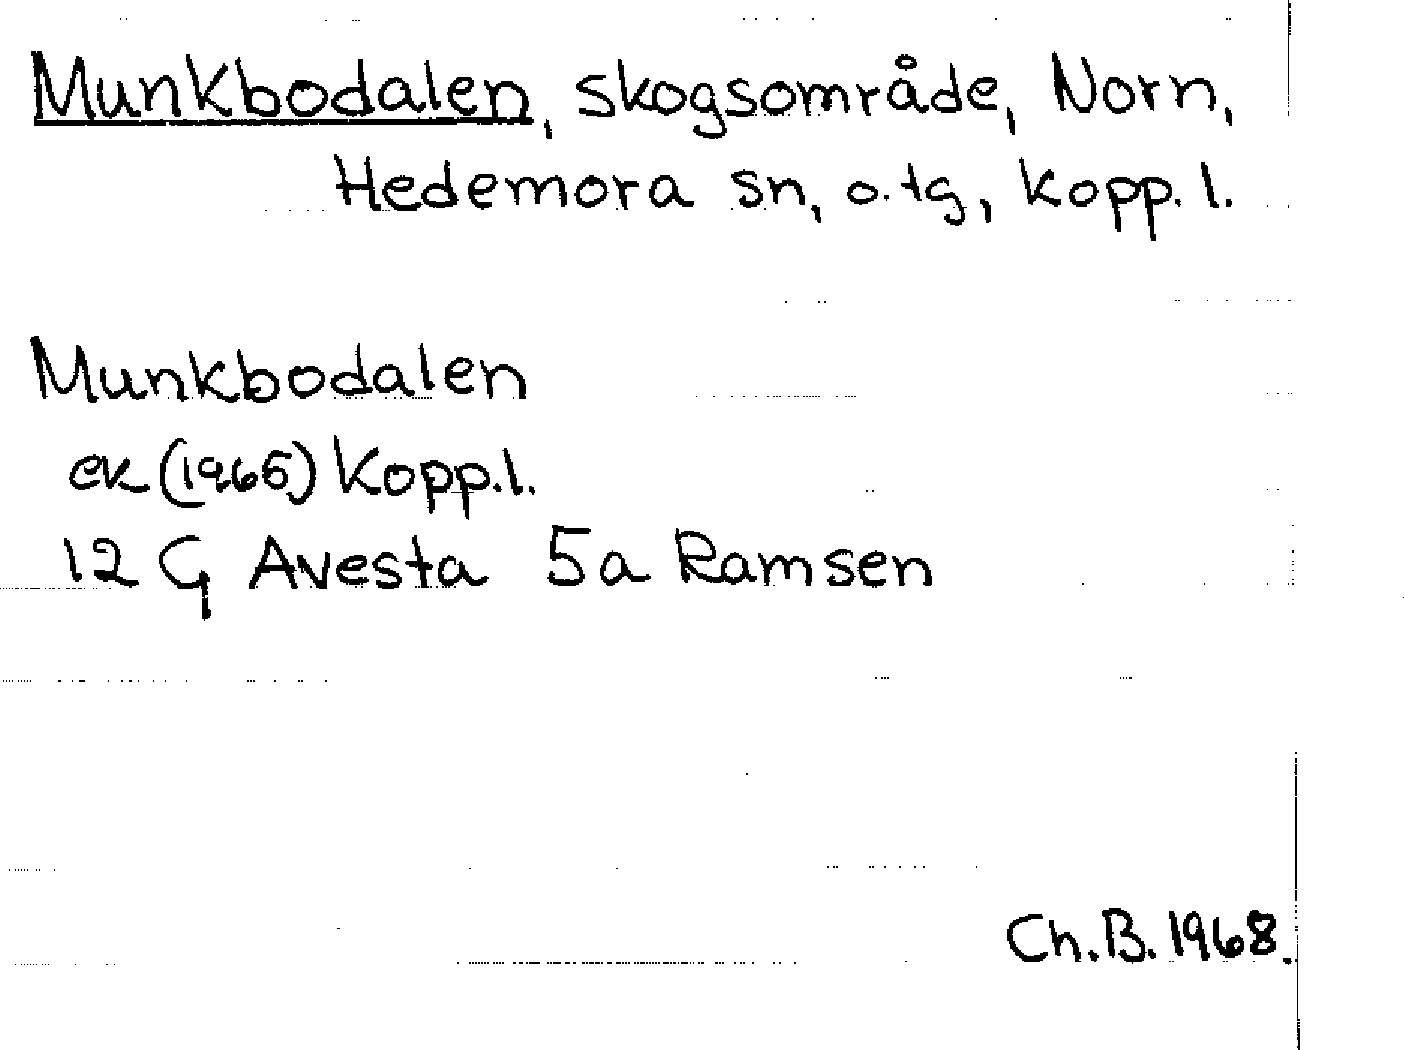 Munkbodalen, skogsområde, Norn,
Hedemora sn, o. tg, Kopp. l.
Munkbodalen
ek (1965) Kopp. l.
12 G Avesta 5a Ramsen
Ch. B. 1968.